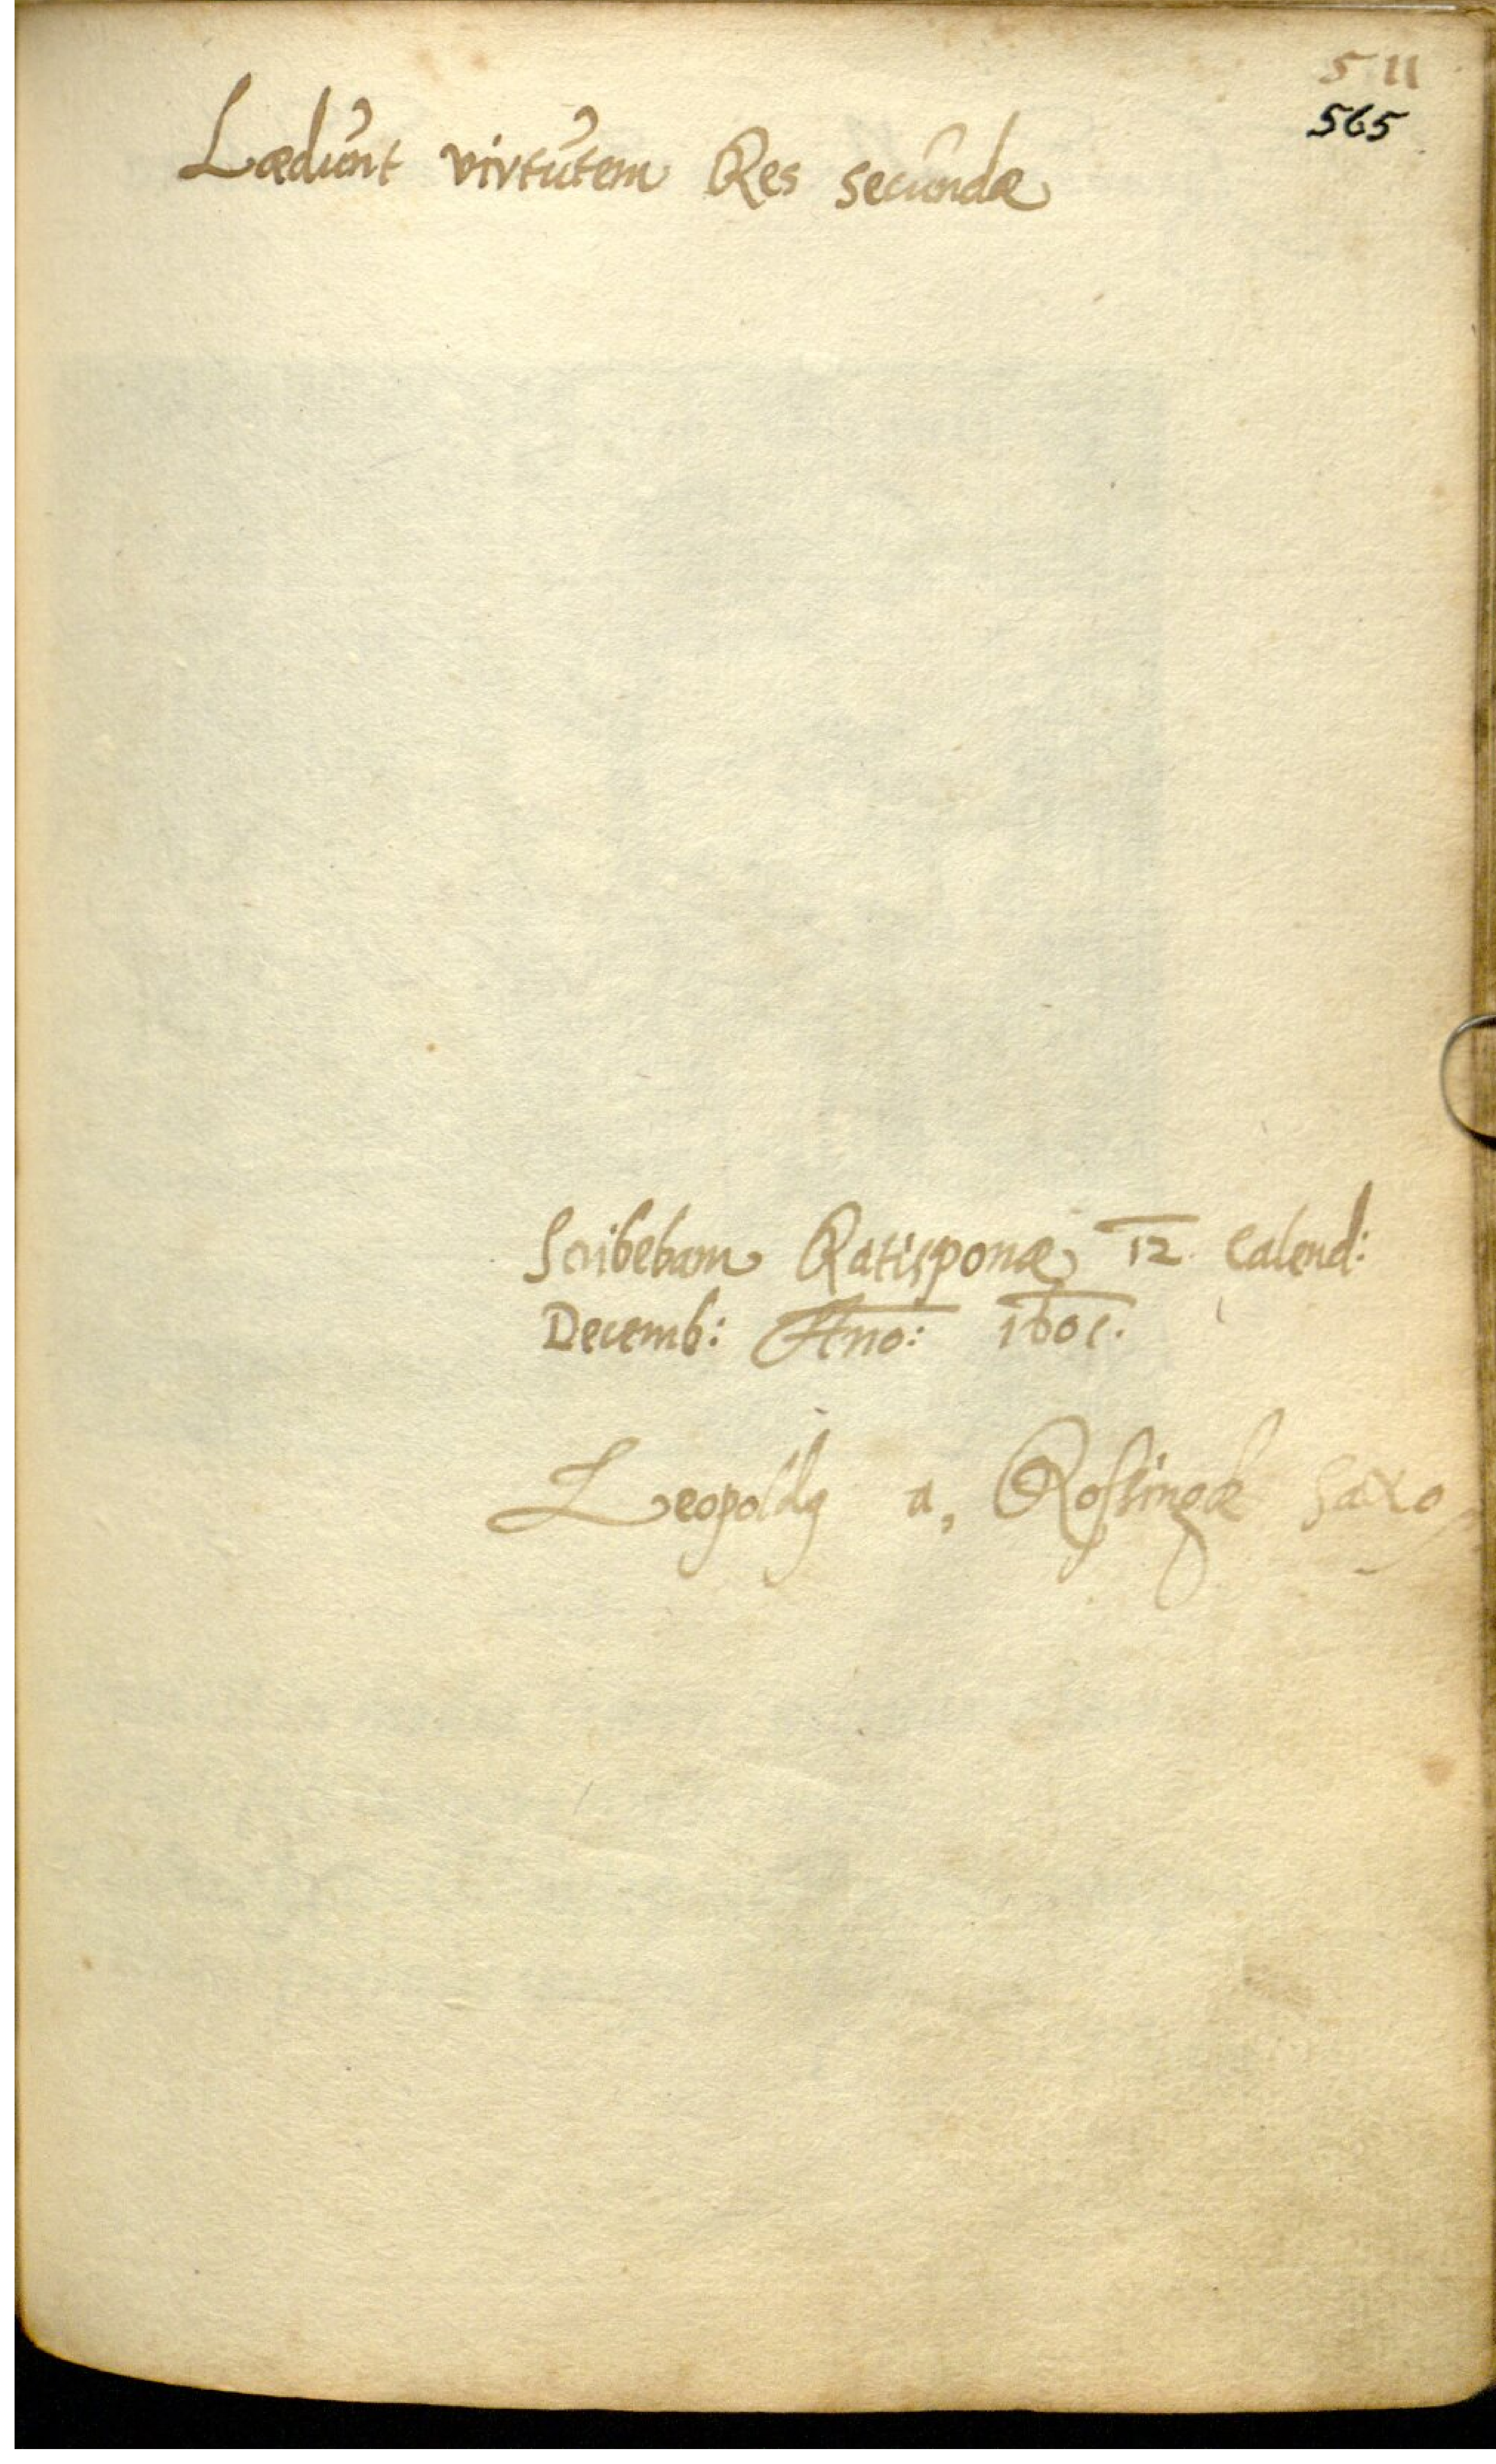 511
565
Lædunt virtutem Res secundæ
Scribebam Ratisponæ 12 Calend:
Decemb: Ano: 1601.
Leopoldꝰ a, Saxo